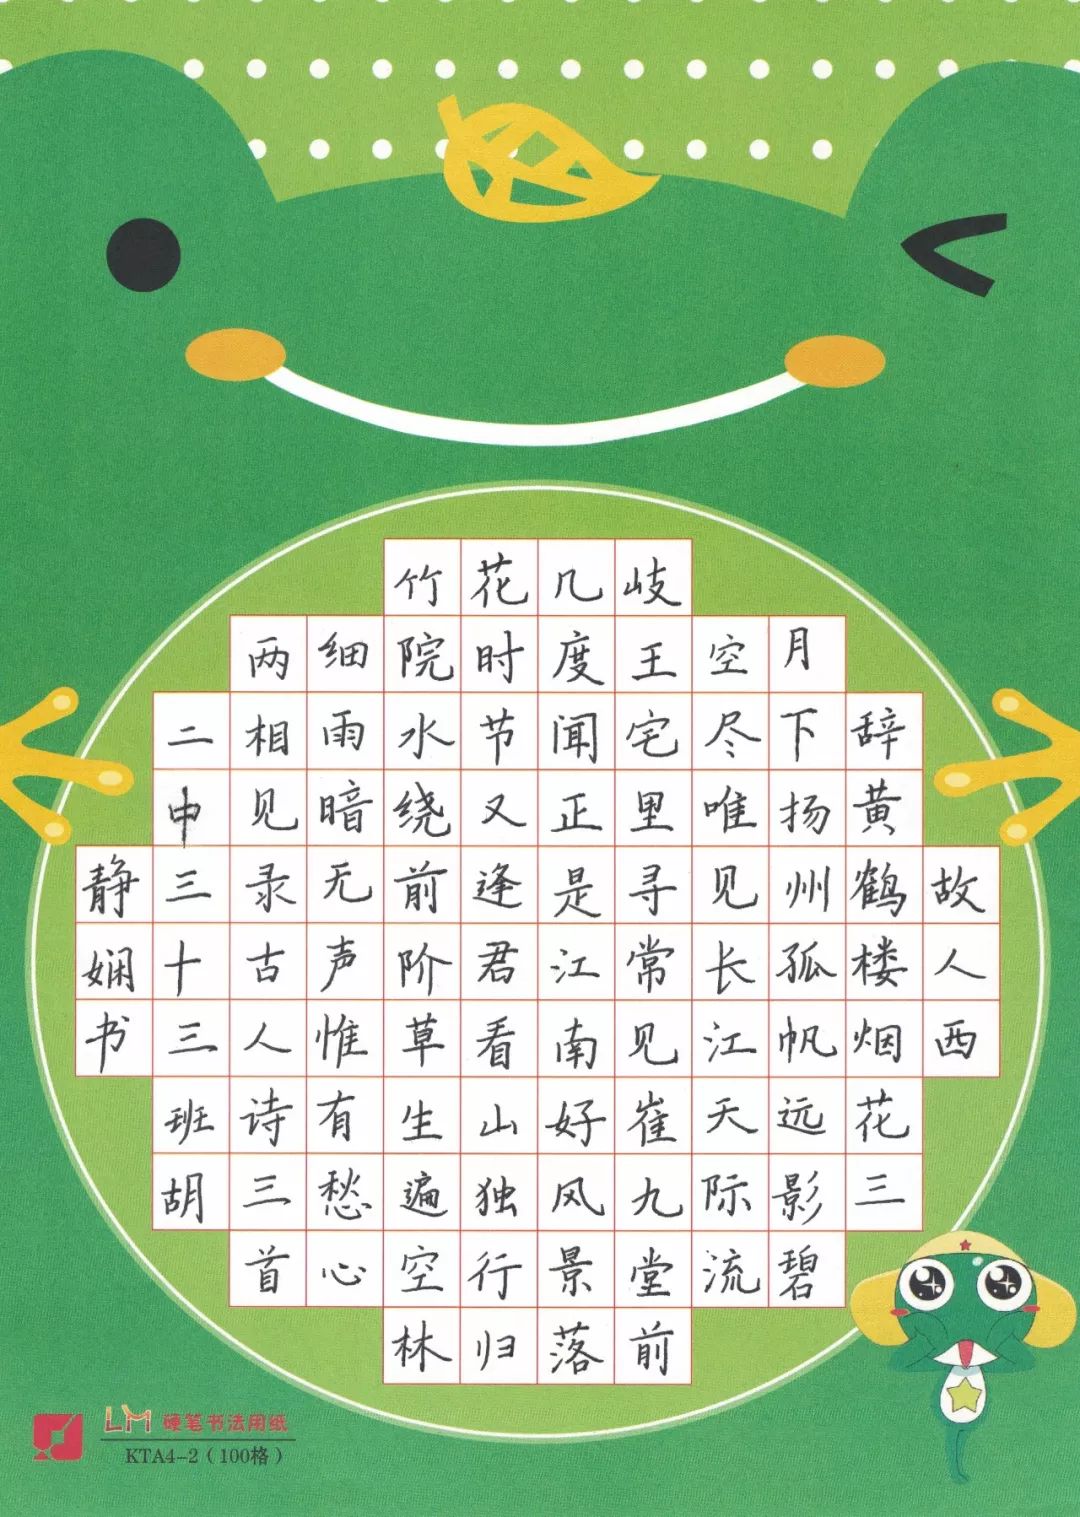 故人西
辞黄鹤楼烟花三
月下扬州孤帆远影碧
空尽唯见长江天际流
岐王宅里寻常见崔九堂前
几度闻正是江南好风景落
花时节又逢君看山独行归
竹院水绕前阶草生遍空林
细雨暗无声惟有愁心
两相见录古人诗三首
二中三十三班胡
静娴书
LM 硬笔书法用纸
KTA4-2(100格)